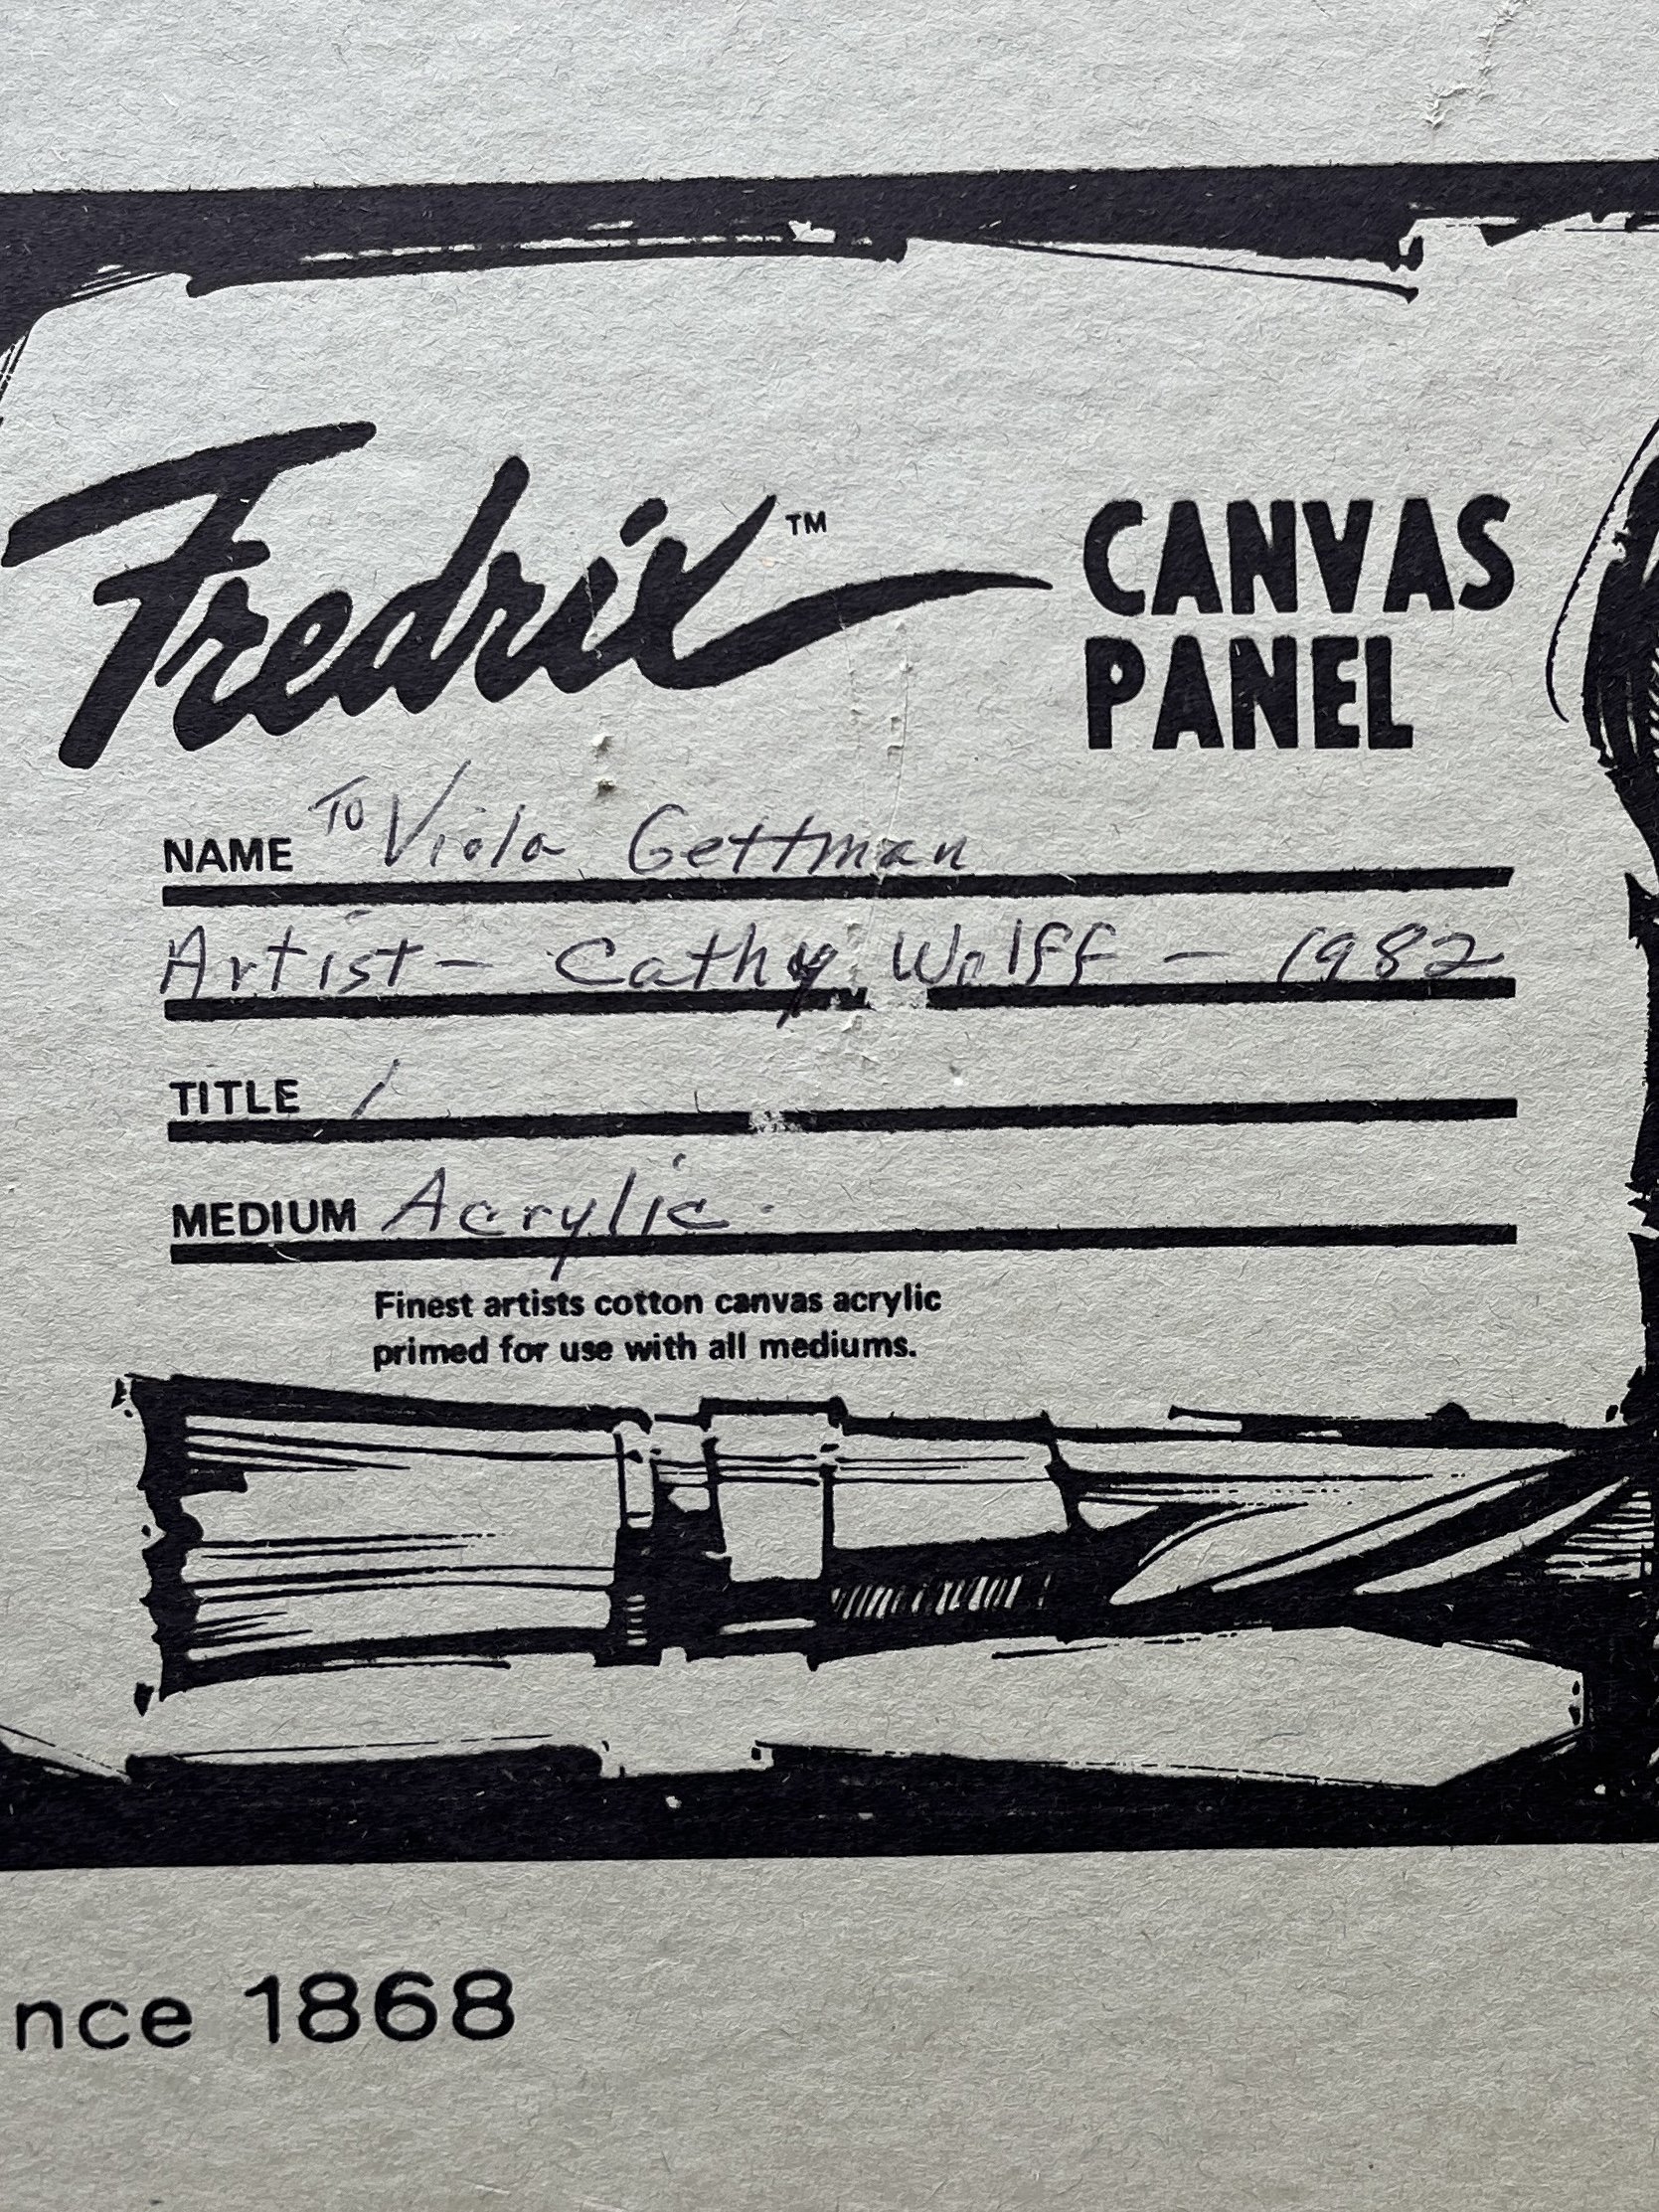 Fredrix™ CANVAS
PANEL
NAME To Viola Gettman
Artist - Cathy Wolff - 1982
TITLE /
MEDIUM Acrylic
Finest artists cotton canvas acrylic
primed for use with all mediums.
nce 1868